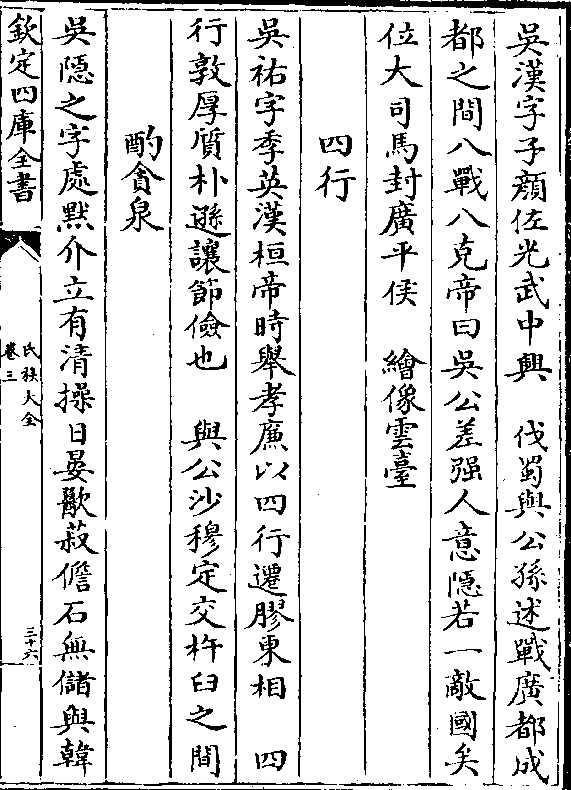 吳漢字子顔佐光武中興　伐蜀與公孫述戰廣都成
都之間八戰八克帝曰吳公差强人意隱若一敵國矣
位大司馬封廣平侯　繪像雲臺
四行
吳祐字季英漢桓帝時舉孝廉以四行遷膠東相　四
行敦厚質朴遜讓節儉也　與公沙穆定交杵臼之間
酌貪泉
吳隱之字處黙介立有清操日晏歠菽儋石無儲與韓
欽定四庫全書
氏族大全
卷三
三十六